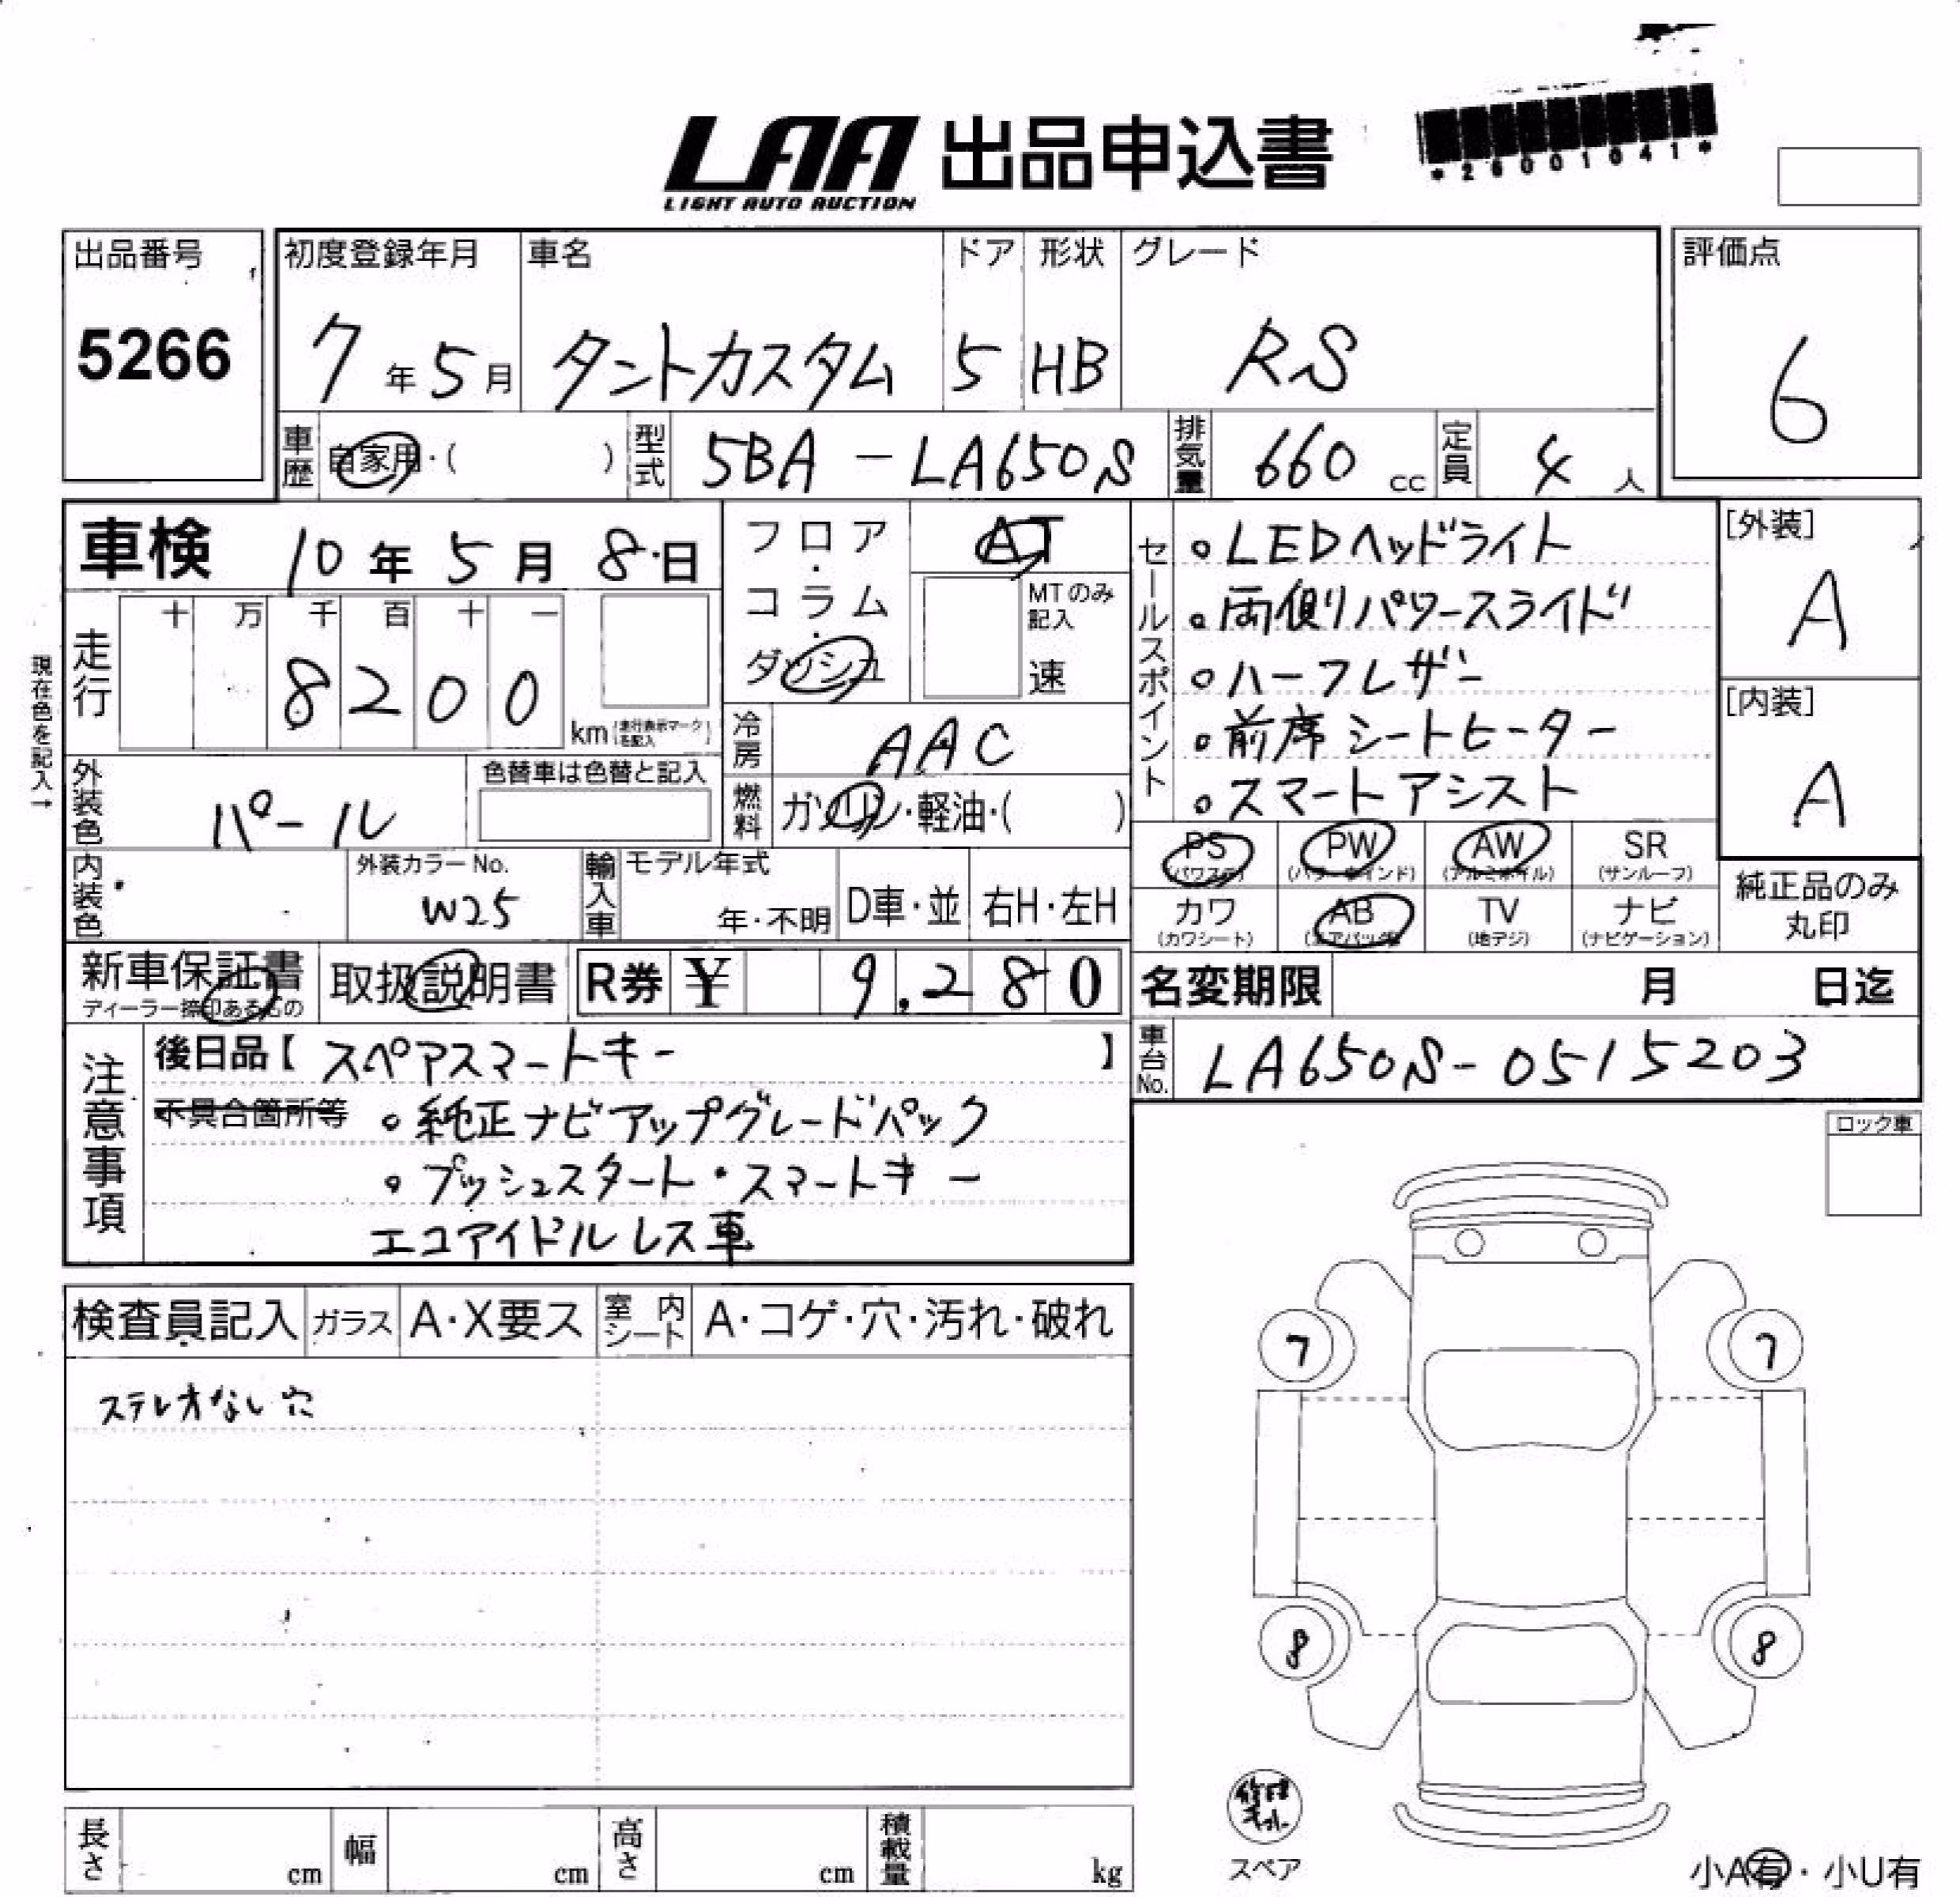 LAA 出品申込書
LIGHT AUTO AUCTION
*26001041*
出品番号
5266
初度登録年月
7年5月
車名
タントカスタム
ドア
5
形状
HB
グレード
RS
評価点
6
車歴 自家用・( )
型式 5BA-LA650S
排気量 660 cc
定員 4人
車検 10年5月8日
フロア・コラム・ダッシュ
AT
MTのみ記入
速
セールスポイント
・LEDヘッドライト
・両側パワースライド
・ハーフレザー
・前席シートヒーター
・スマートアシスト
[外装]
A
[内装]
A
現在色を記入→
走行
十 万 千 百 十 一
8200 km (走行表示マークを記入)
冷房 AAC
外装色 パール
色替車は色替と記入
燃料 ガソリン・軽油・( )
内装色
外装カラーNo.
W25
輸入車
モデル年式
年・不明
D車・並
右H・左H
PS (パワステ)
PW (パワーウインド)
AW (アルミホイル)
SR (サンルーフ)
カワ (カワシート)
AB (エアバッグ)
TV (地デジ)
ナビ (ナビゲーション)
純正品のみ丸印
新車保証書
ディーラー捺印あるもの
取扱説明書
R券 ¥ 9,280
名変期限 月 日迄
注意事項
後日品【スペアスマートキー】
不具合箇所等 ・純正ナビアップグレードパック
・プッシュスタート・スマートキー
エコアイドルレス車
車台No. LA650S-0515203
ロック車
検査員記入
ガラス A・X要ス
室内シート A・コゲ・穴・汚れ・破れ
ステレオなし穴
7 7
8 8
修理キット
スペア
小A有・小U有
長さ cm
幅 cm
高さ cm
積載量 kg